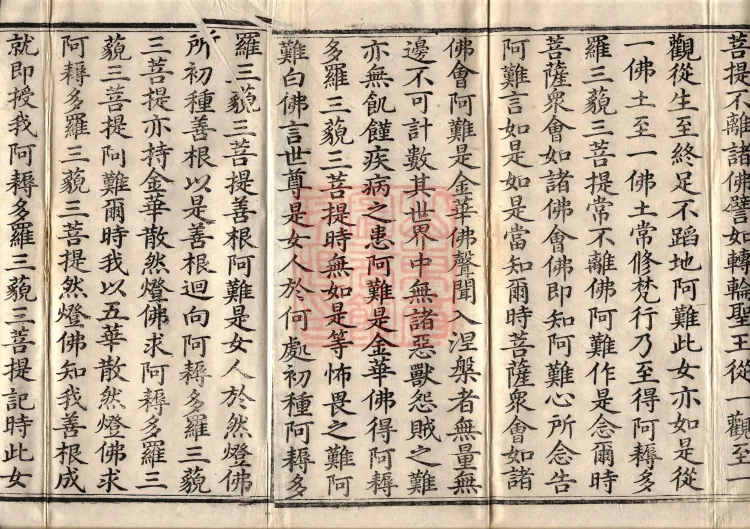 菩提不離諸佛譬如轉輪聖王從一觀至一
觀從生至終足不蹈地阿難此女亦如是從
一佛土至一佛土常修梵行乃至得阿耨多
羅三藐三菩提常不離佛阿難作是念爾時
菩薩衆會如諸佛會佛即知阿難心所念告
阿難言如是如是當知爾時菩薩衆會如諸
佛會阿難是金華佛聲聞入涅槃者無量無
邊不可計數其世界中無諸惡獸怨賊之難
亦無飢饉疾病之患阿難是金華佛得阿耨
多羅三藐三菩提時無如是等怖畏之難阿
難白佛言世尊是女人於何處初種阿耨多
羅三藐三菩提善根阿難是女人於然燈佛
所初種善根以是善根迴向阿耨多羅三藐
三菩提亦持金華散然燈佛求阿耨多羅三
藐三菩提阿難爾時我以五華散然燈佛求
阿耨多羅三藐三菩提然燈佛知我善根成
就即授我阿耨多羅三藐三菩提記時此女